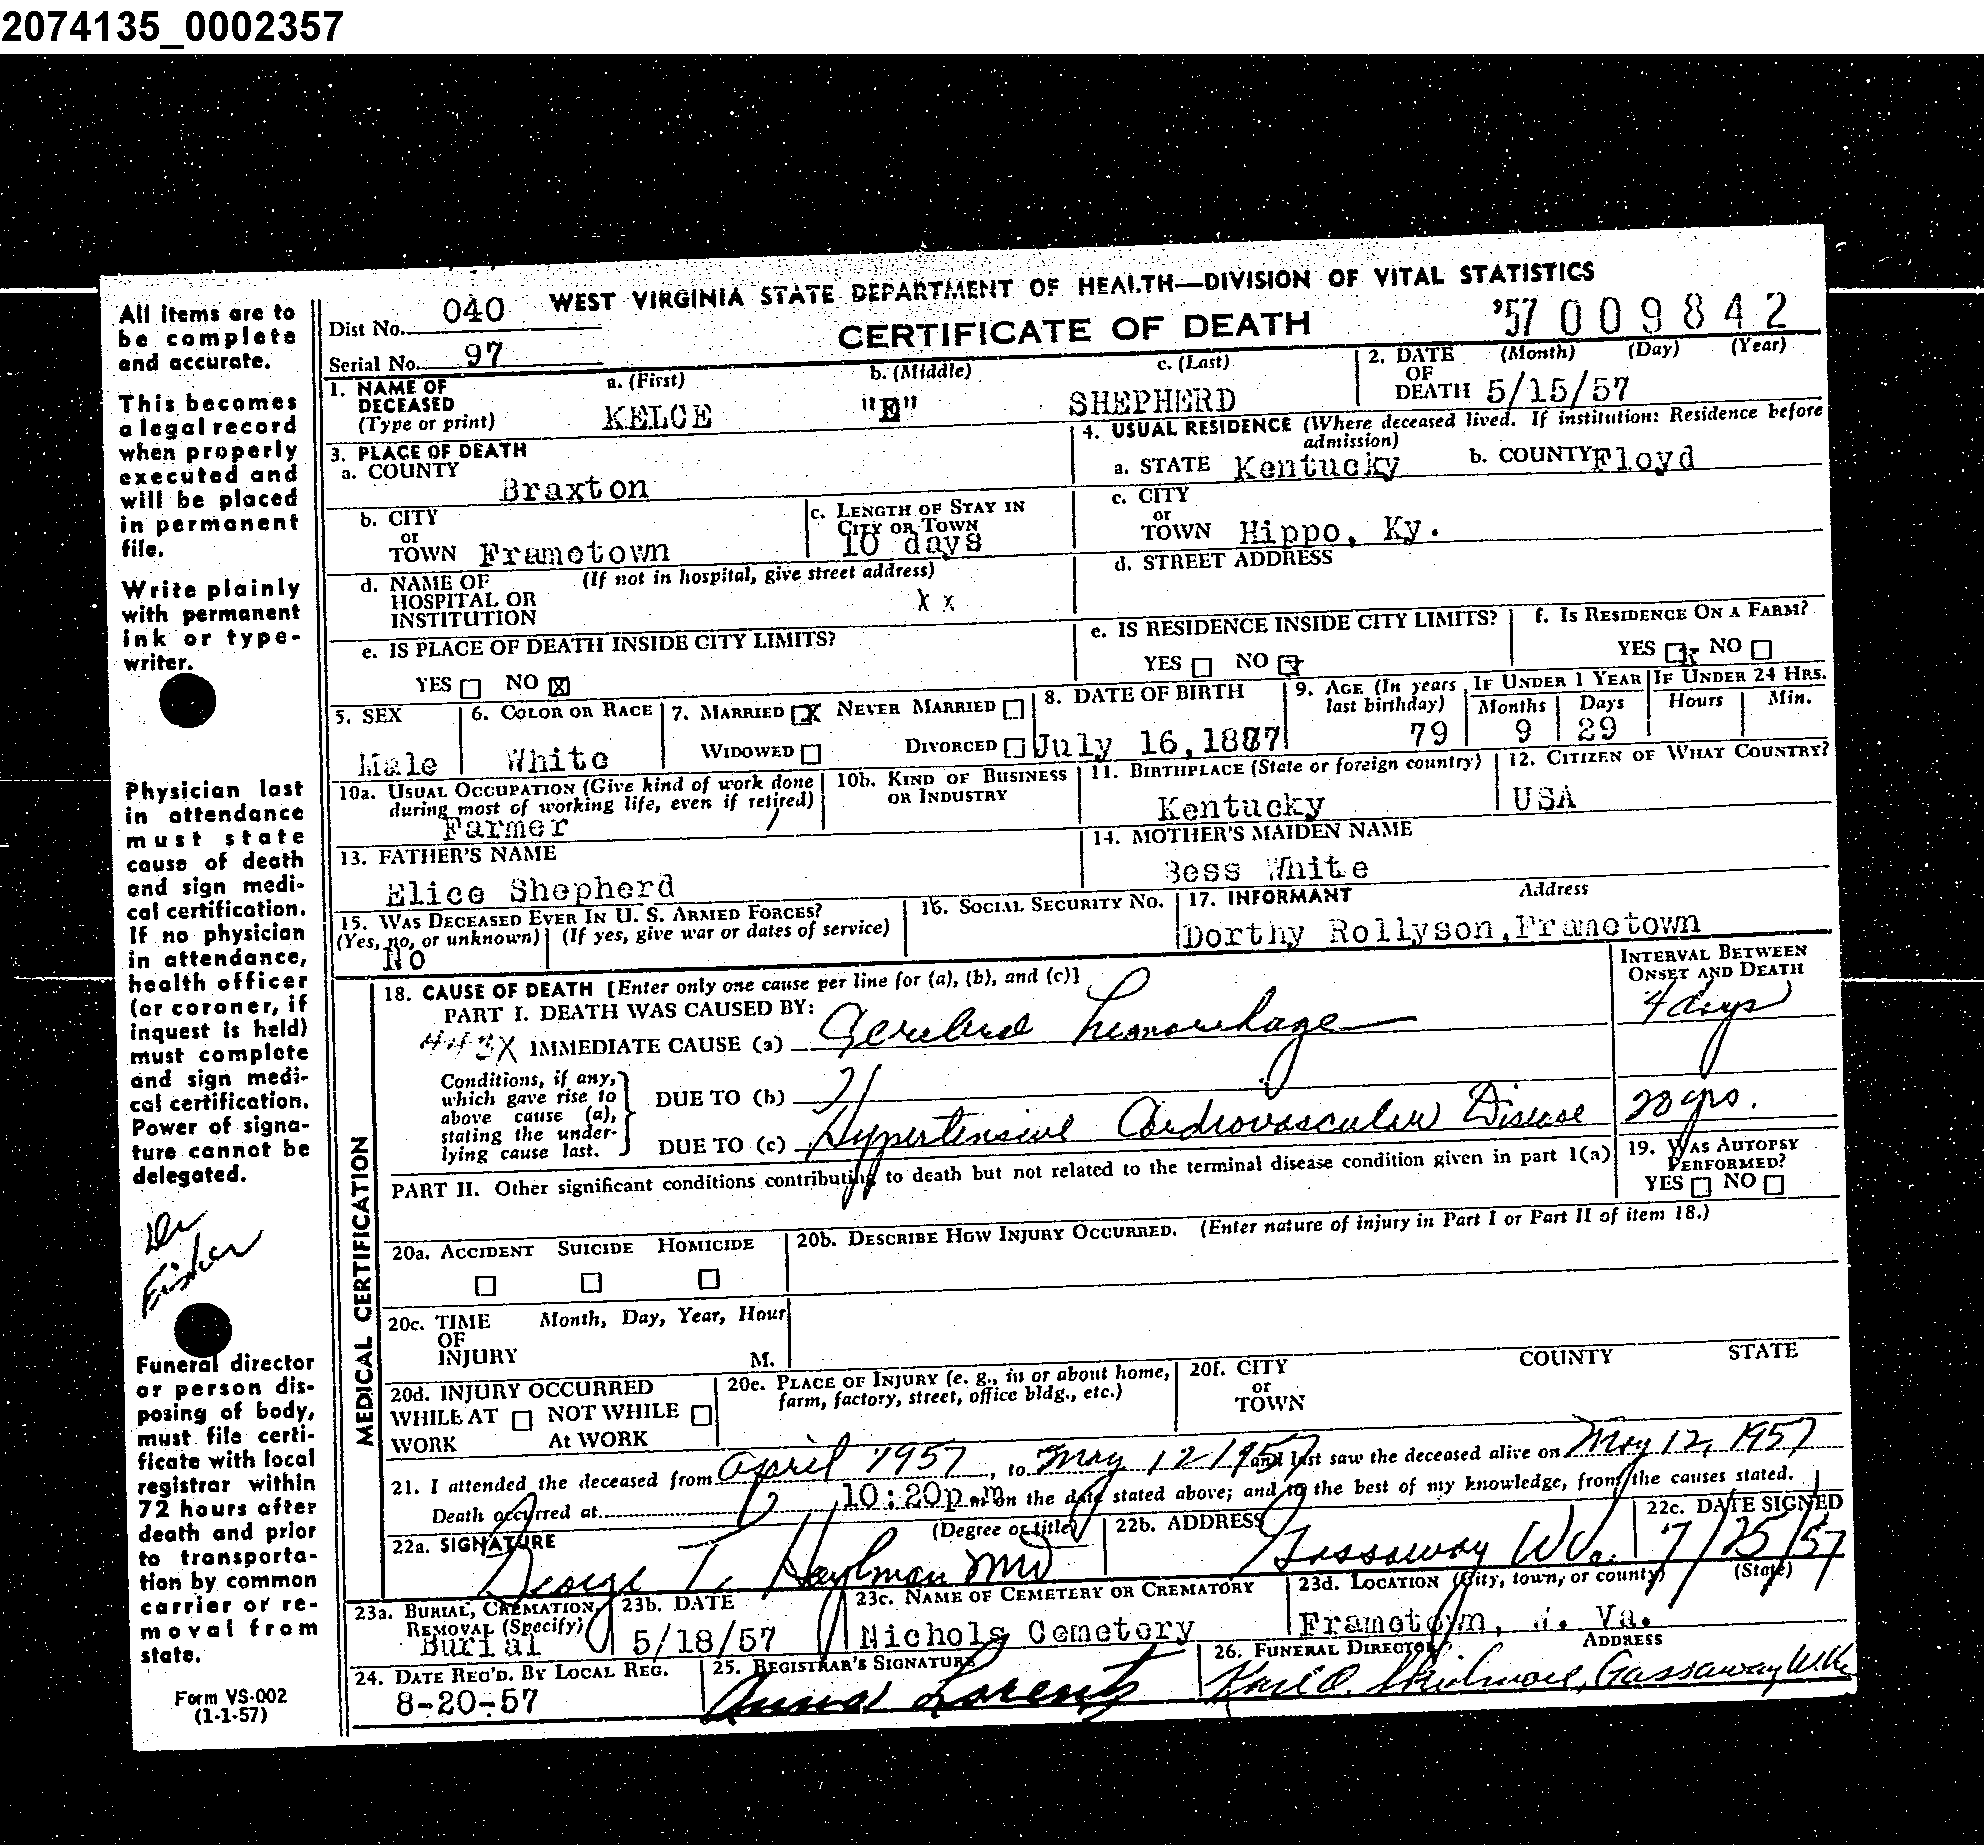 2074135_0002357
All items are to
be complete
and accurate.
This becomes
a legal record
when properly
executed and
will be placed
in permanent
file.
Write plainly
with permanent
ink or type-
writer.
Physician last
in attendance
must state
cause of death
and sign medi-
cal certification.
If no physician
in attendance,
health officer
(or coroner, if
inquest is held)
must complete
and sign medi-
cal certification.
Power of signa-
ture cannot be
delegated.
Dr
Fisher
Funeral director
or person dis-
posing of body,
must file certi-
ficate with local
registrar within
72 hours after
death and prior
to transporta-
tion by common
carrier or re-
moval from
state.
Form VS-002
(1-1-57)
Dist No. 040 WEST VIRGINIA STATE DEPARTMENT OF HEALTH—DIVISION OF VITAL STATISTICS
Serial No. 97 CERTIFICATE OF DEATH '57 009842
1. NAME OF DECEASED (Type or print) a. (First) b. (Middle) c. (Last)
KELCE "E" SHEPHERD
2. DATE OF DEATH (Month) (Day) (Year)
5/15/57
3. PLACE OF DEATH
a. COUNTY Braxton
b. CITY or TOWN Frametown
c. LENGTH OF STAY IN CITY OR TOWN
10 days
d. NAME OF HOSPITAL OR INSTITUTION (If not in hospital, give street address)
x x
e. IS PLACE OF DEATH INSIDE CITY LIMITS?
YES NO X
4. USUAL RESIDENCE (Where deceased lived. If institution: Residence before admission)
a. STATE Kentucky b. COUNTY Floyd
c. CITY or TOWN Hippo, Ky.
d. STREET ADDRESS
e. IS RESIDENCE INSIDE CITY LIMITS?
YES NO x
f. IS RESIDENCE ON A FARM?
YES x NO
5. SEX
Male
6. COLOR OR RACE
White
7. MARRIED X NEVER MARRIED
WIDOWED DIVORCED
8. DATE OF BIRTH
July 16,1877
9. AGE (In years last birthday)
79
IF UNDER 1 YEAR
Months Days
9 29
IF UNDER 24 HRS.
Hours Min.
10a. USUAL OCCUPATION (Give kind of work done during most of working life, even if retired)
Farmer
10b. KIND OF BUSINESS OR INDUSTRY
11. BIRTHPLACE (State or foreign country)
Kentucky
12. CITIZEN OF WHAT COUNTRY?
USA
13. FATHER'S NAME
Elice Shepherd
14. MOTHER'S MAIDEN NAME
Bess White
15. WAS DECEASED EVER IN U. S. ARMED FORCES?
(Yes, no, or unknown) (If yes, give war or dates of service)
No
16. SOCIAL SECURITY No.
17. INFORMANT Address
Dorthy Rollyson,Frametown
MEDICAL CERTIFICATION
18. CAUSE OF DEATH [Enter only one cause per line for (a), (b), and (c)]
PART I. DEATH WAS CAUSED BY:
443X IMMEDIATE CAUSE (a) Cerebral hemorrhage
INTERVAL BETWEEN ONSET AND DEATH
4 days
Conditions, if any, which gave rise to above cause (a), stating the under-lying cause last.
DUE TO (b)
DUE TO (c) Hypertensive Cardiovascular Disease 20 yrs.
PART II. Other significant conditions contributing to death but not related to the terminal disease condition given in part I(a)
19. WAS AUTOPSY PERFORMED?
YES NO
20a. ACCIDENT SUICIDE HOMICIDE
20b. DESCRIBE HOW INJURY OCCURRED. (Enter nature of injury in Part I or Part II of item 18.)
20c. TIME OF INJURY Month, Day, Year, Hour
M.
20d. INJURY OCCURRED
WHILE AT WORK NOT WHILE At WORK
20e. PLACE OF INJURY (e. g., in or about home, farm, factory, street, office bldg., etc.)
20f. CITY or TOWN COUNTY STATE
21. I attended the deceased from April 1957, to May 12 1957 and last saw the deceased alive on May 12, 1957
Death occurred at 10:20p.m. m on the date stated above; and to the best of my knowledge, from the causes stated.
22a. SIGNATURE (Degree or title)
George T. Hoylman MD
22b. ADDRESS
Gassaway W Va.
22c. DATE SIGNED
7/25/57
23a. BURIAL, CREMATION, REMOVAL (Specify)
Burial
23b. DATE
5/18/57
23c. NAME OF CEMETERY OR CREMATORY
Nichols Cemetery
23d. LOCATION (City, town, or county) (State)
Frametown, W. Va.
24. DATE REC'D. BY LOCAL REG.
8-20-57
25. REGISTRAR'S SIGNATURE
Anna Lorentz
26. FUNERAL DIRECTOR ADDRESS
Karl O. Skidmore, Gassaway W.Va